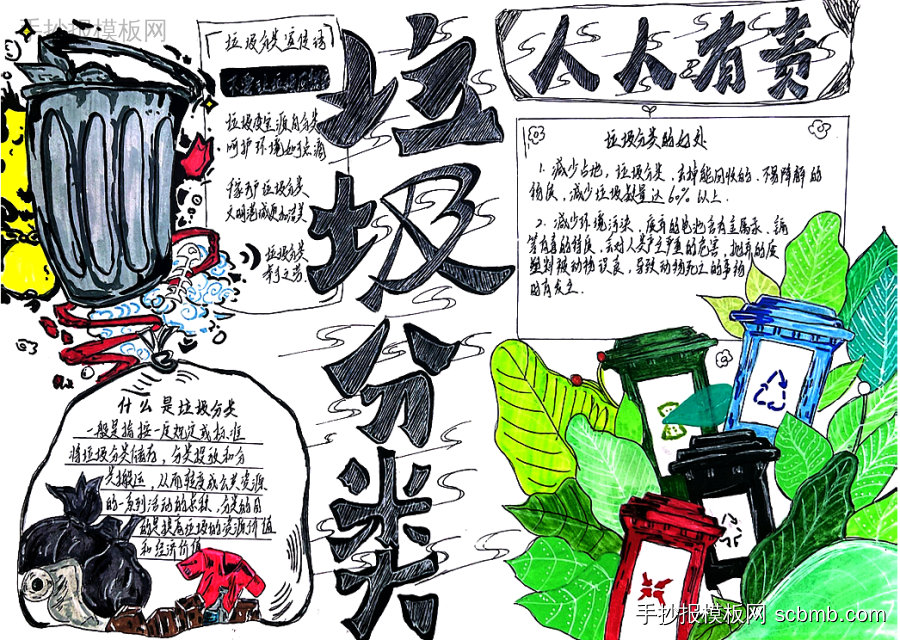 手抄报模板网
垃圾分类宣传语
垃圾变宝源自分类
呵护环境始于点滴
垃圾分类
垃圾分类
人人有责
垃圾分类的好处
1. 减少占地，垃圾分类，去掉能回收的、不易降解的
物质，减少垃圾数量达60%以上.
2. 减少环境污染，废弃的电池含有金属汞、镉
等有毒的物质，会对人类产生严重的危害，
误食，导致动物死亡的事故
时有发生.
什么是垃圾分类
一般是指按一定规定或标准
将垃圾分类储存，分类投放和分
类搬运，从而转变成公共资源
的一系列活动的总称，分类的目
的是提高垃圾的资源价值
和经济价值
手抄报模板网 scbmb.com